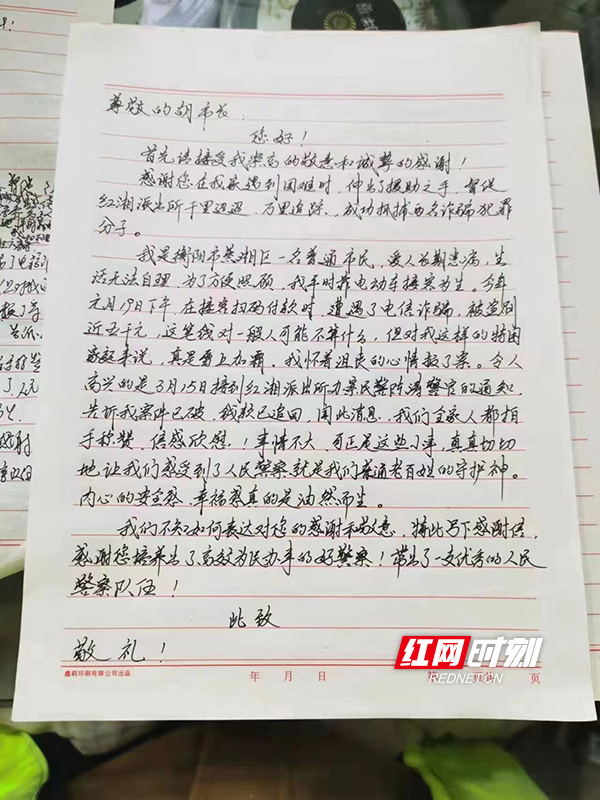 尊敬的胡市长:
您好!
首先请接受我崇高的敬意和诚挚的感谢!
感谢您在我家遇到困难时,伸出了援助之手,督促
红湘派出所千里迢迢,万里追踪,成功抓捕两名诈骗犯罪
分子。
我是衡阳市蒸湘区一名普通市民,爱人长期患病,生
活无法自理,为了方便照顾,我平时靠电动车接客为生。今年
元月19日下午,在接客扫码付款时,遭遇了电信诈骗,被盗刷
近五千元,这笔钱对一般人可能不算什么,但对我这样的特困
家庭来说,真是雪上加霜,我怀着沮丧的心情报了案。令人
高兴的是3月15日接到红湘派出所办案民警陈清警官的通知
告诉我案件已破,钱款已追回,闻此消息,我们全家人都拍
手称赞,倍感欣慰!事情不大,可正是这些小事,真真切切
地让我们感受到了人民警察就是我们普通老百姓的守护神。
内心的安全感、幸福感真的是油然而生。
我们不知如何表达对您的感谢和敬意,特此写下感谢信,
感谢您培养出了高效为民办事的好警察!带出了一支优秀的人民
警察队伍!
此致
敬礼!
年 月 日
页
鑫莉印刷有限公司出品
红网时刻
REDNET.CN